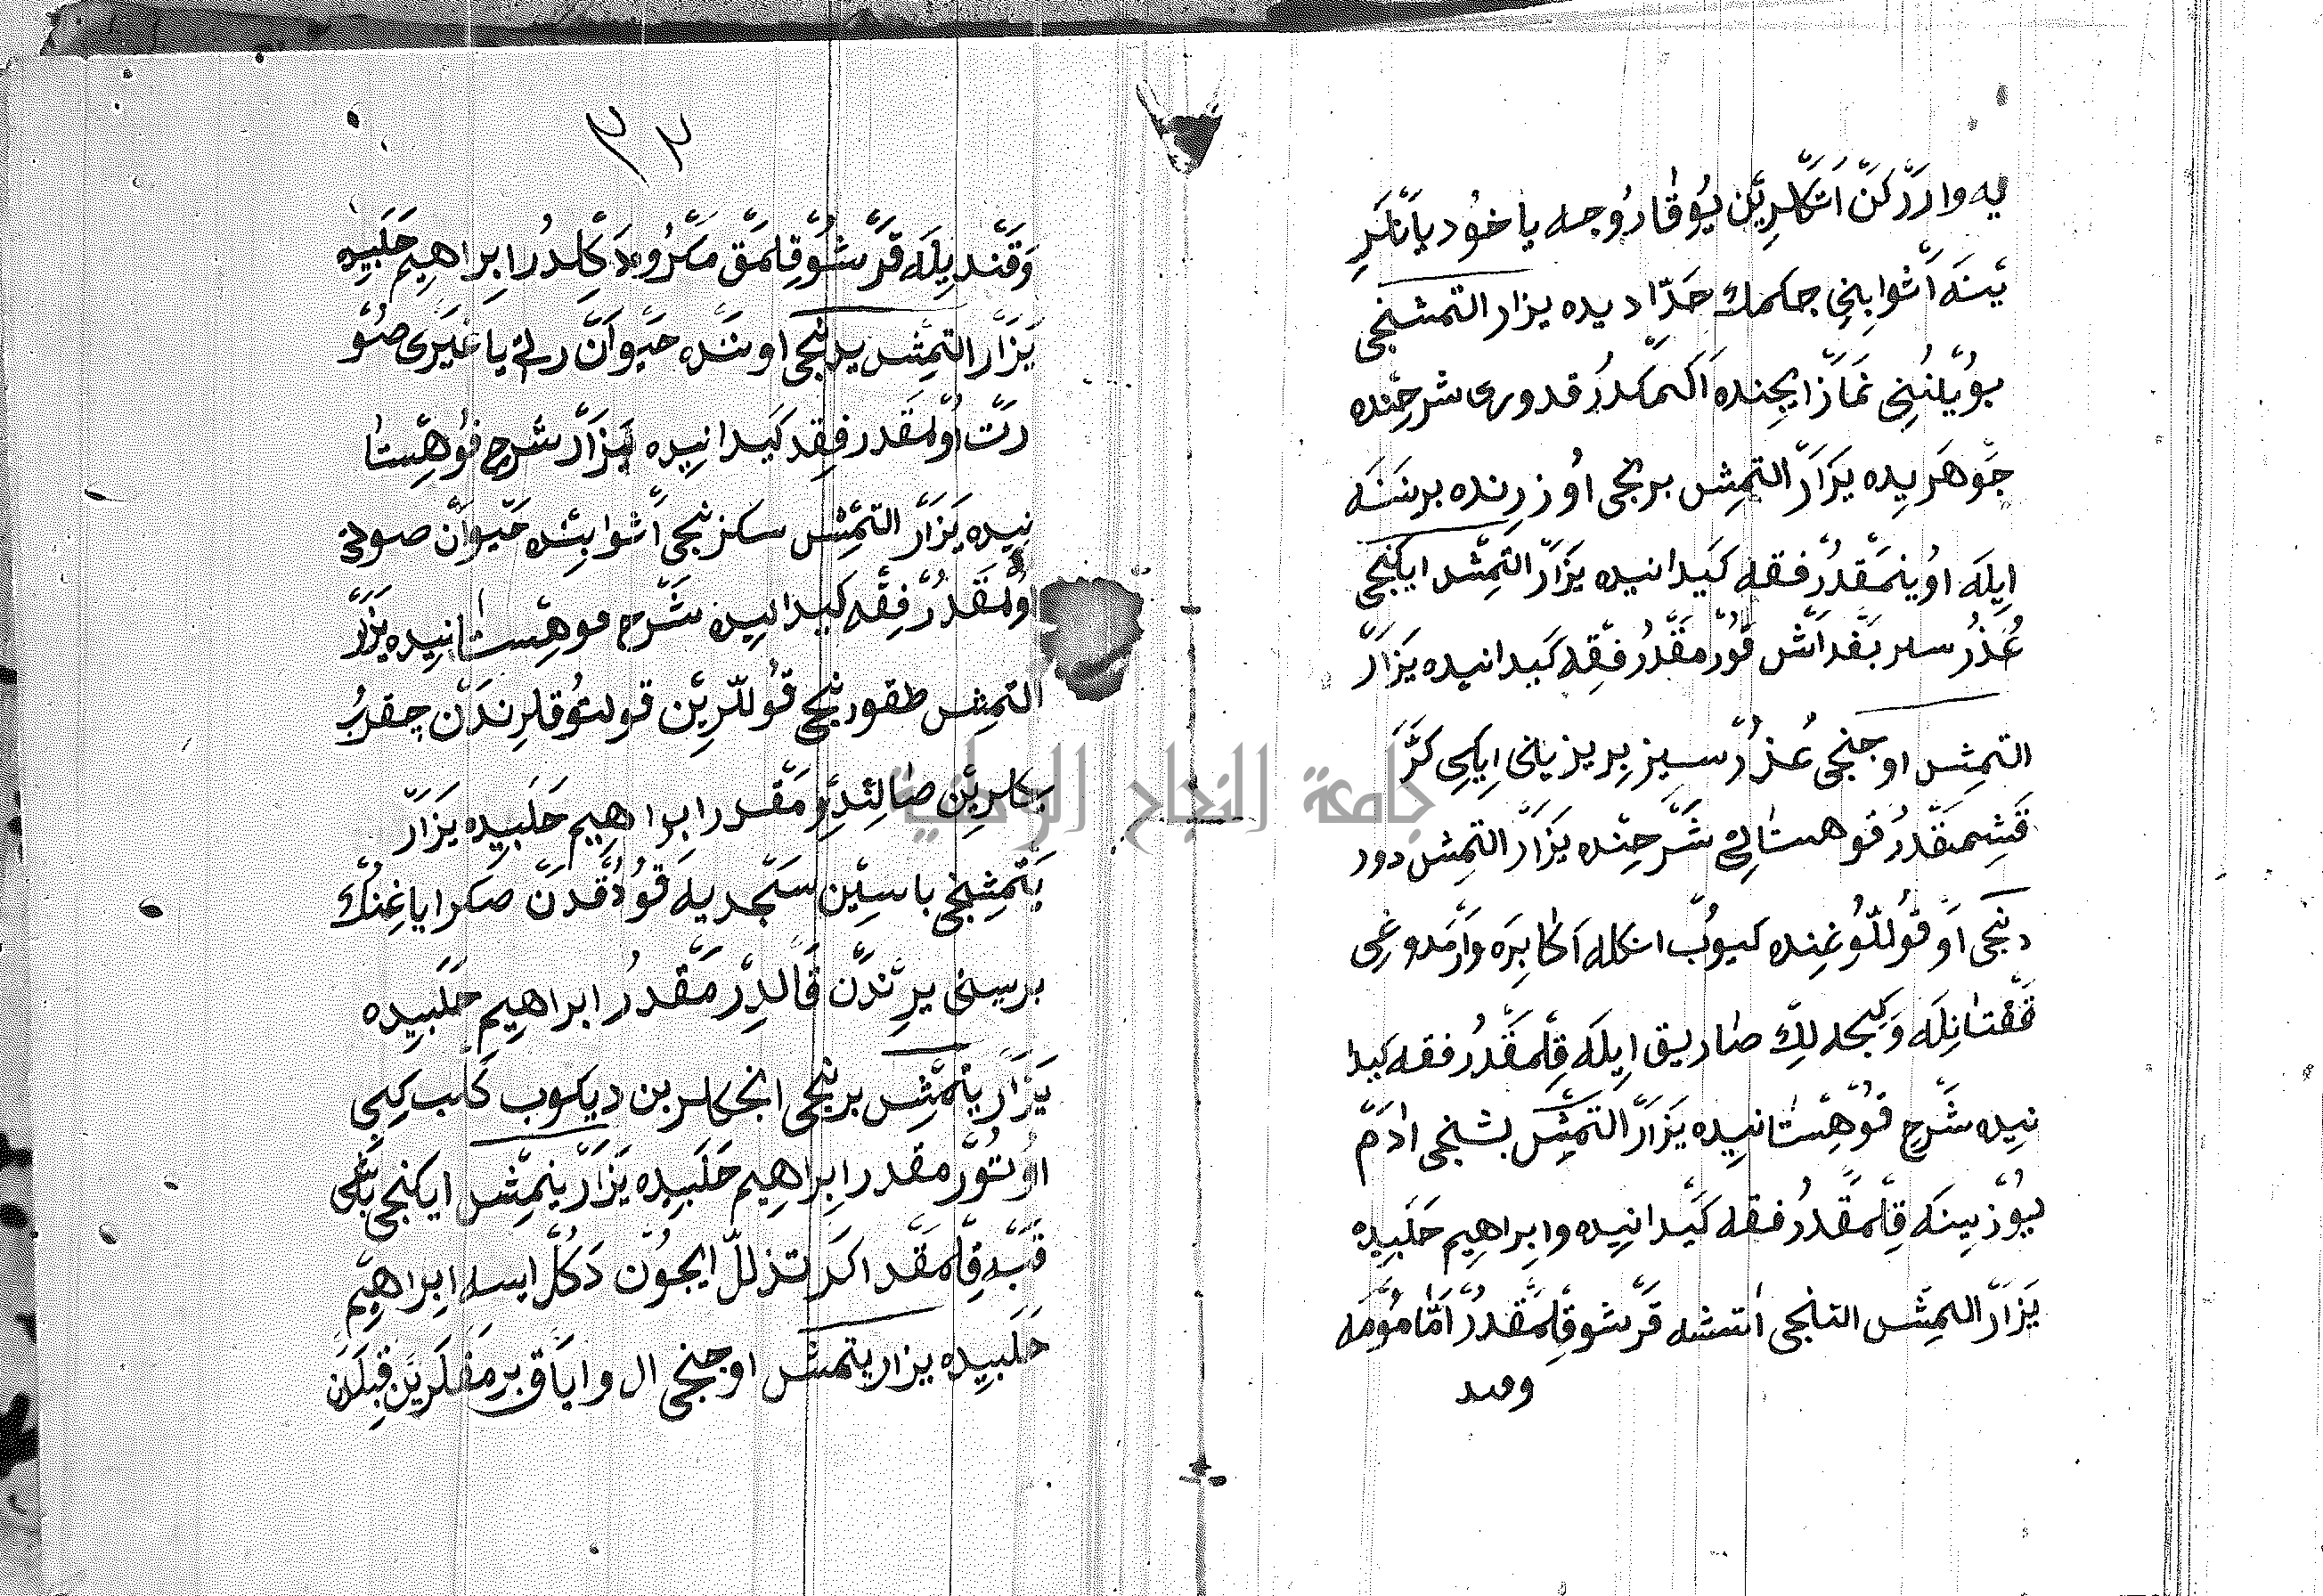 يه واررکن اتکلرین یوقارو جسه یا خود یاکلری
ینه اثوابنی جکمك حدّادیده یزار التمشنجی
بوینی نماز ایچنده اکمکدر قدوری شرحنده
جوهریده یزار التمش برنجی اوزرنده بر نسنه
ایله اوینمقدر فقه کیدانیده یزار التمش ایکنجی
عذرسز بغداش قورمقدر فقه کیدانیده یزار
التمش اوجنجی عذرسیز بریز یانی ایکی کره
قشمقدر قوهستانی شرحنده یزار التمش دورد
دنجی او قوللوغنده کیوب انکله اکابره وارمدوغی
قفتانله و کیجه لك صاریق ایله قلمقدر فقه کیدا
نیده شرح قوهستانیده یزار التمش بشنجی ادم
یوزینه قلمقدر فقه کیدانیده وابراهیم حلبیده
یزار التمش التنجی اتشه قرشو قلمقدر امّا مومه
وقند
٣٢
وقندیله قرشو قلمق مکروه دکلدر ابراهیم حلبیده
یزار التمش یدنجی اوننده حیوان رلی یا غیری صو
رت اولمقدر فقه کیدانیده یزار شرح قوهستا
نیده یزار التمش سکزنجی اثوابنده حیوان صورتی
اولمقدر فقه کیدانیده شرح قوهستانیده یزار
التمش طقوزنجی قوللرین قولتوقلرندن چقرب
یکلرین صالندرمقدر ابراهیم حلبیده یزار
یتمشنجی باسین سجدیه قودقدن صکرا ایاغنك
برسنی یرندن قالدرمقدر ابراهیم حلبیده
یزار یتمش برنجی انجکلرین دیکوب کلب کبی
اوتورمقدر ابراهیم حلبیده یزار یتمش ایکنجی باشی
قبه قلمقدر اکر تذلل ایچون دکل ایسه ابراهیم
حلبیده یزار یتمش اوجنجی ال و ایاق برمقلرین قبلدن
جامعة النجاح الوطنية